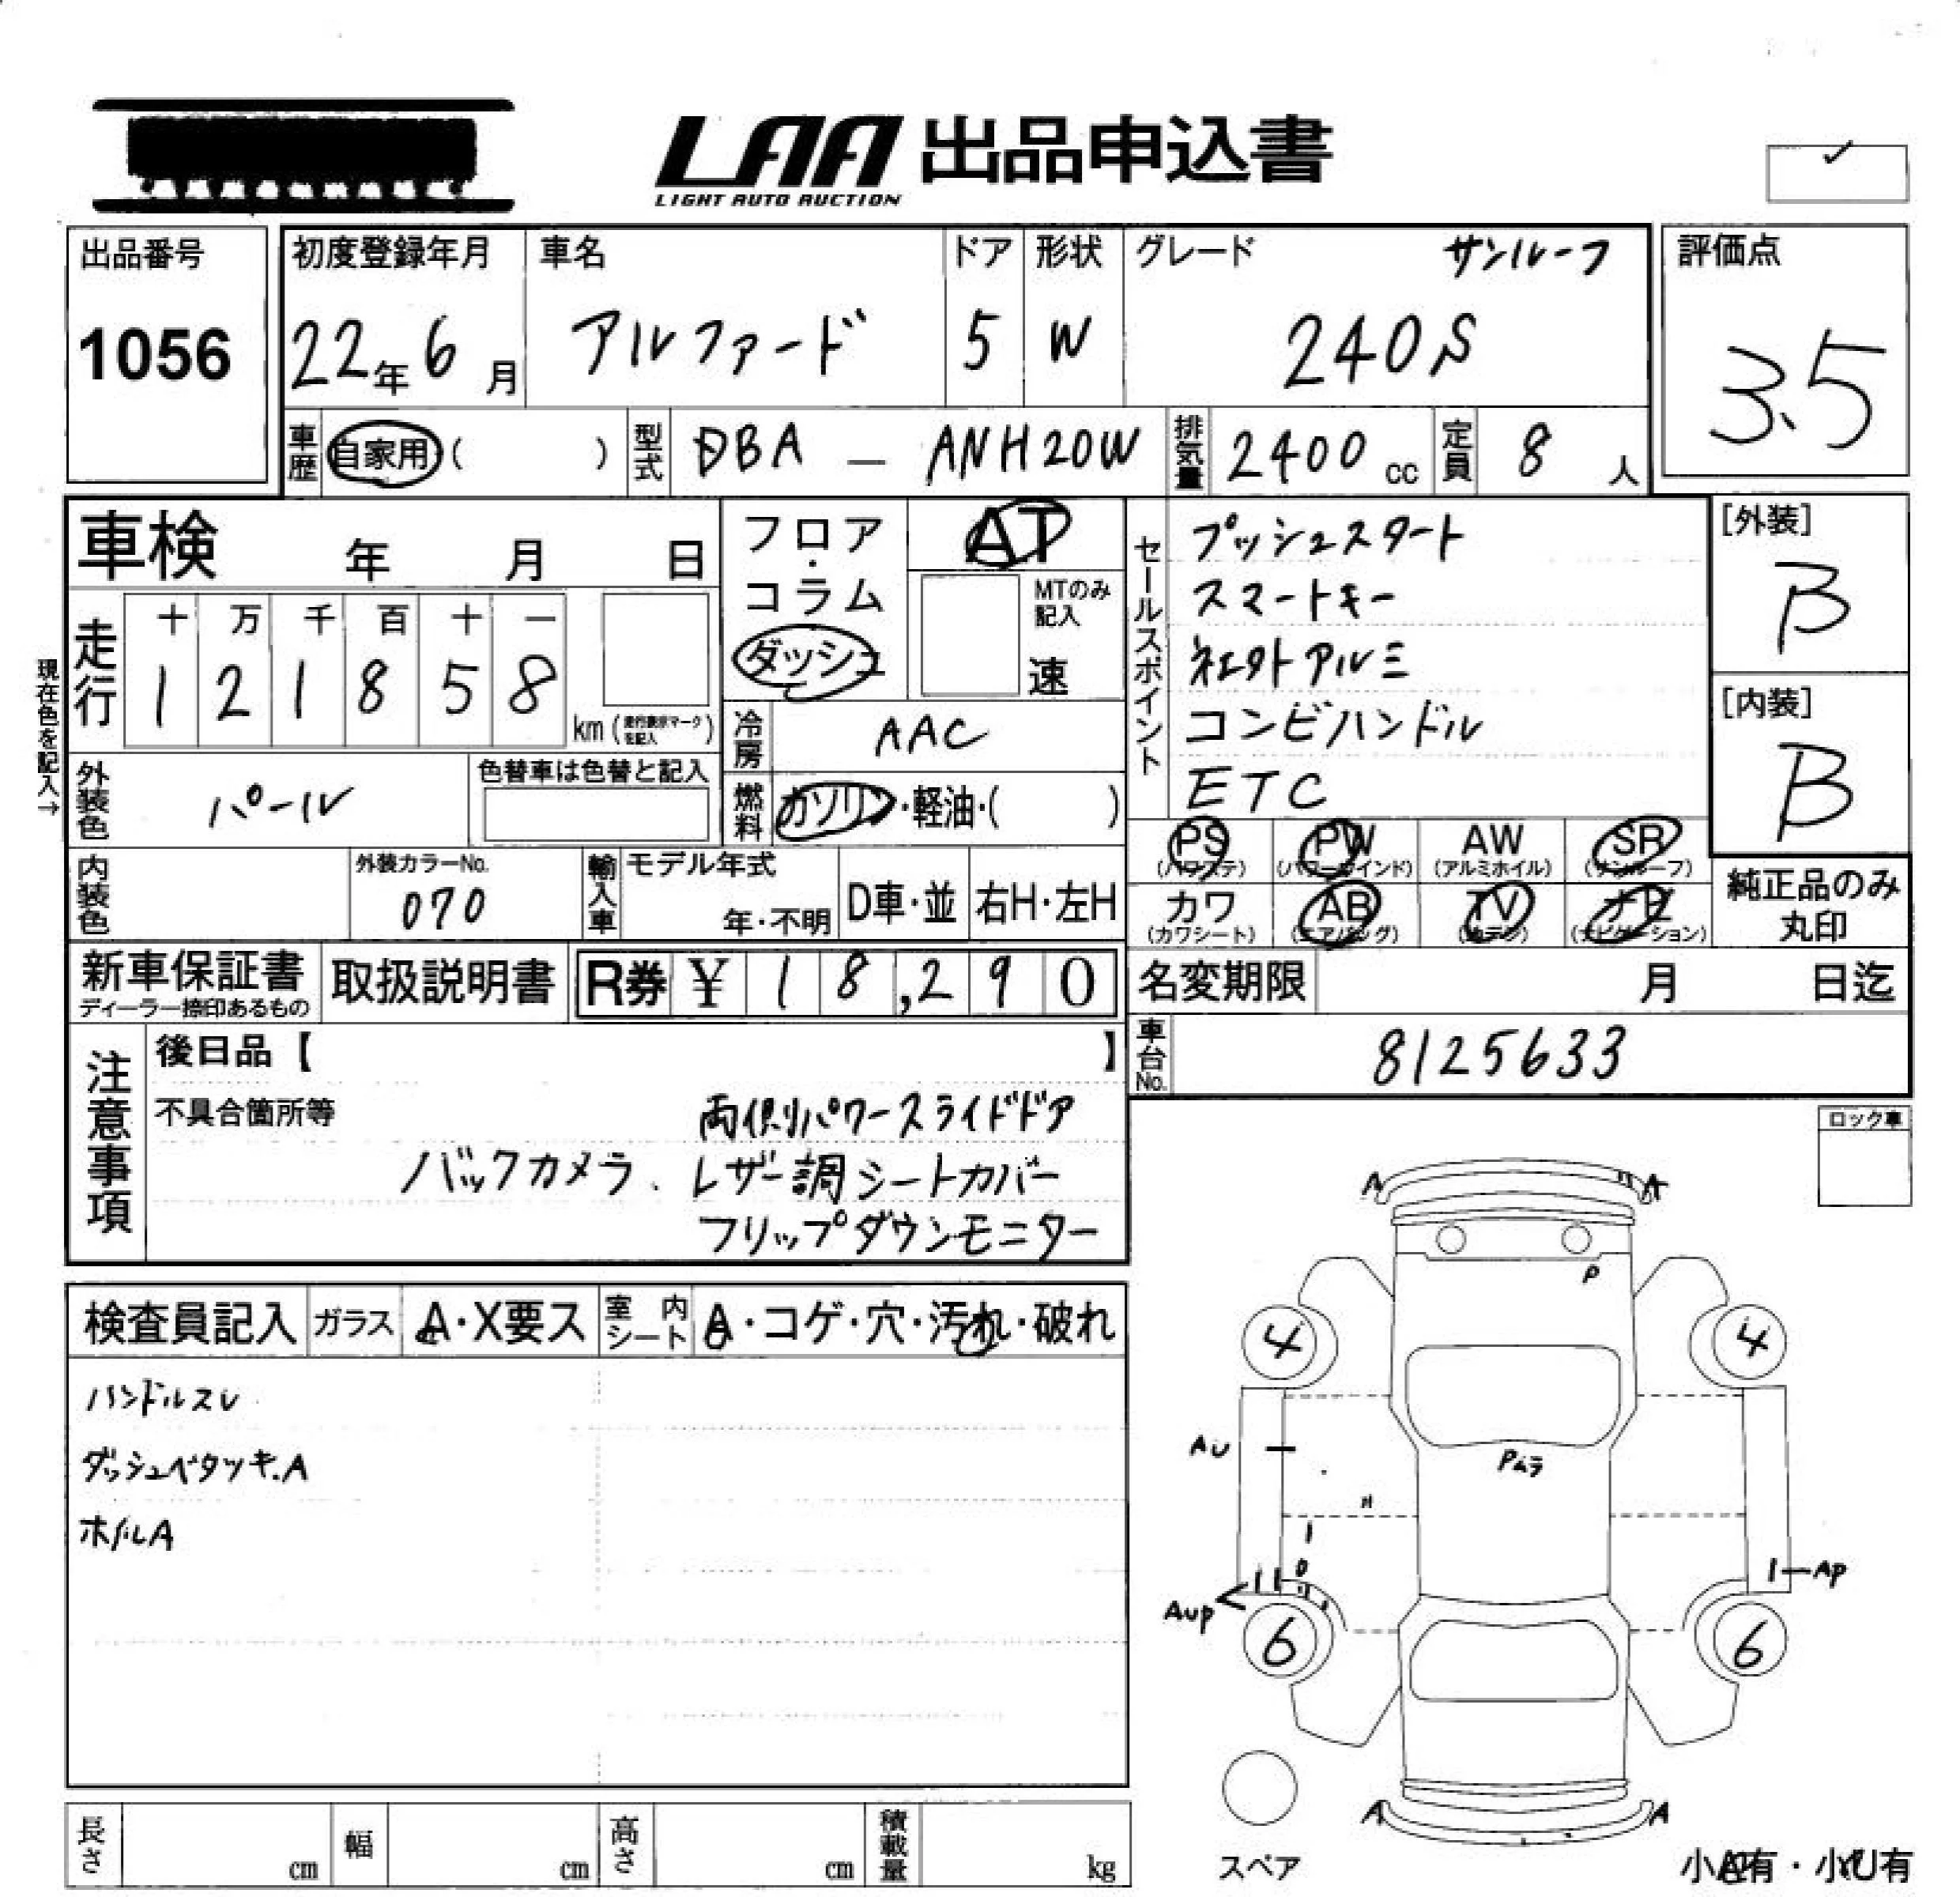 LAA 出品申込書
LIGHT AUTO AUCTION
出品番号
1056
初度登録年月
22年6月
車名
アルファード
ドア
5
形状
W
グレード サンルーフ
240S
評価点
3.5
車歴 自家用 ( )
型式 DBA — ANH20W
排気量 2400 cc
定員 8 人
車検 年 月 日
走行
十 万 千 百 十 一
1 2 1 8 5 8
km (走行表示マークを記入)
現在色を記入→
外装色 パール
色替車は色替と記入
内装色
外装カラーNo.
070
フロア・コラム
ダッシュ
AT
MTのみ記入
速
冷房 AAC
燃料 ガソリン・軽油・( )
輸入車
モデル年式
年・不明
D車・並
右H・左H
セールスポイント
プッシュスタート
スマートキー
社外アルミ
コンビハンドル
ETC
[外装]
B
[内装]
B
PS
(パワステ)
PW
(パワーウインド)
AW
(アルミホイル)
SR
(サンルーフ)
カワ
(カワシート)
AB
(エアバッグ)
TV
ナビ
(ナビゲーション)
純正品のみ
丸印
新車保証書
ディーラー捺印あるもの
取扱説明書
R券 ¥ 18,290
名変期限 月 日迄
車台No. 8125633
注意事項
後日品【 】
不具合箇所等
両側パワースライドドア
バックカメラ、レザー調シートカバー
フリップダウンモニター
ロック車
検査員記入
ガラス A・X要ス
室内シート A・コゲ・穴・汚れ・破れ
ハンドルスレ
ダッシュベタツキ.A
ホイルA
A A
P
4 4
AU
Pムラ
AP
AUP
6 6
A A
スペア
長さ cm
幅 cm
高さ cm
積載量 kg
小A有・小U有